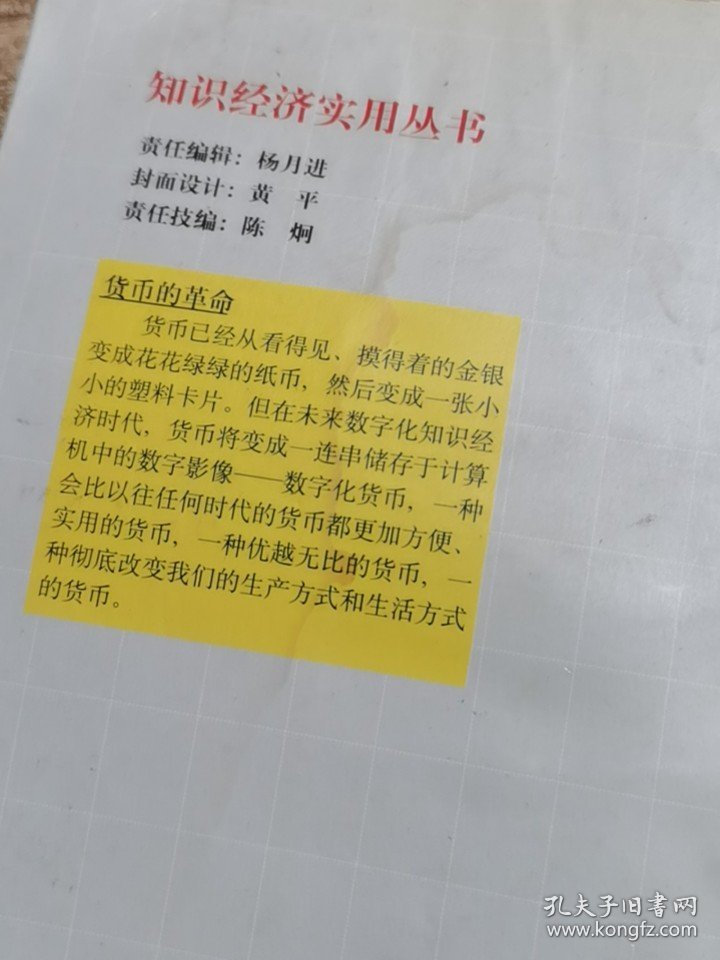 知识经济实用丛书
责任编辑：杨月进
封面设计：黄 平
责任技编：陈 炯
货币的革命
货币已经从看得见、摸得着的金银
变成花花绿绿的纸币，然后变成一张小
小的塑料卡片。但在未来数字化知识经
济时代，货币将变成一连串储存于计算
机中的数字影像——数字化货币，一种
会比以往任何时代的货币都更加方便、
实用的货币，一种优越无比的货币，一
种彻底改变我们的生产方式和生活方式
的货币。
孔夫子旧书网
www.kongfz.com